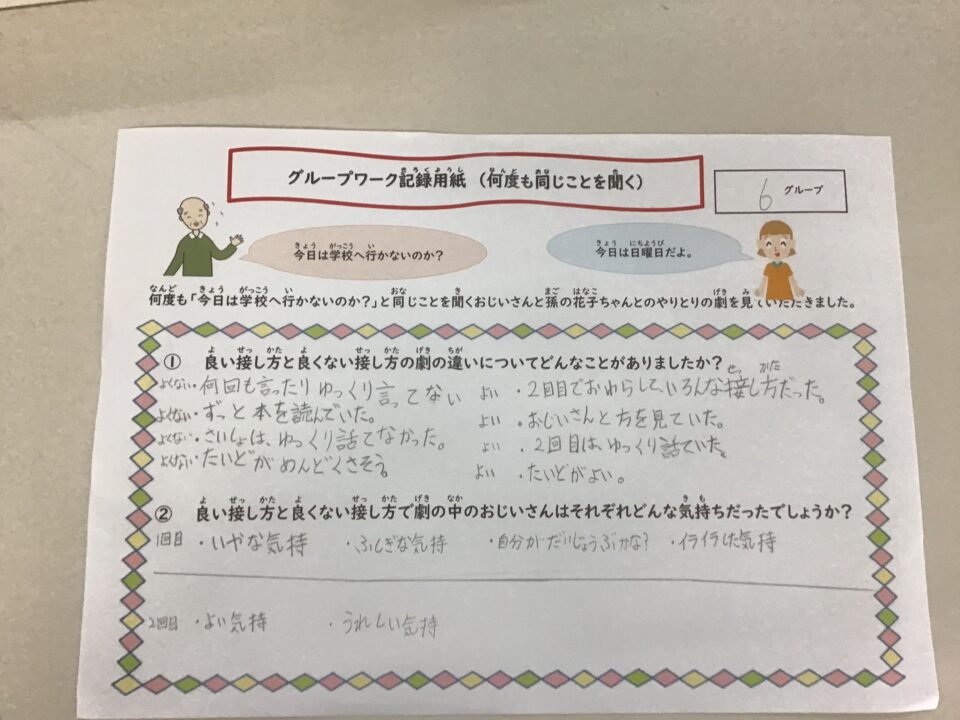 グループワーク記録用紙（何度も同じことを聞く）
6 グループ
今日は学校へ行かないのか？
今日は日曜日だよ。
何度も「今日は学校へ行かないのか？」と同じことを聞くおじいさんと孫の花子ちゃんとのやりとりの劇を見ていただきました。
① 良い接し方と良くない接し方の劇の違いについてどんなことがありましたか？
よくない・何回も言ったりゆっくり言ってない
よくない・ずっと本を読んでいた。
よくない・さいしょは、ゆっくり話てなかった。
よくない・たいどがめんどくさそう。
よい・2回目でおわらしているんな接し方だった。
よい・おじいさんと方を見ていた。
よい・2回目は、ゆっくり話ていた。
よい・たいどがよい。
② 良い接し方と良くない接し方で劇の中のおじいさんはそれぞれどんな気持ちだったでしょうか？
1回目 ・いやな気持 ・ふしぎな気持 ・自分がだいじょうぶかな？ ・イライラした気持
2回目 ・よい気持 ・うれしい気持